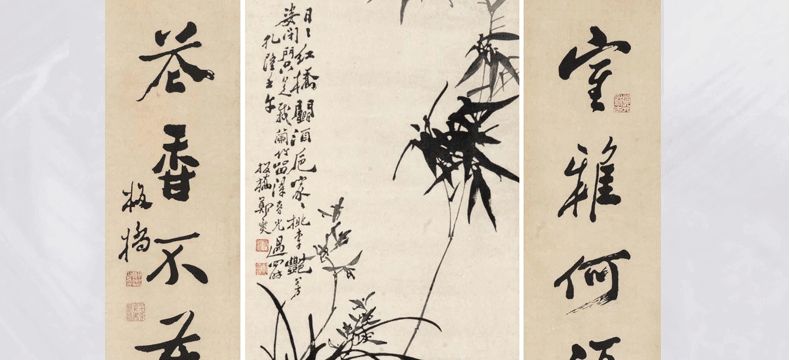 室雅何須
日〻紅橋鬪酒卮家〻桃李豔芳
姿閉門只是栽蘭竹留得春光過四時
乾隆壬午
板橋鄭燮
花香不在
板橋